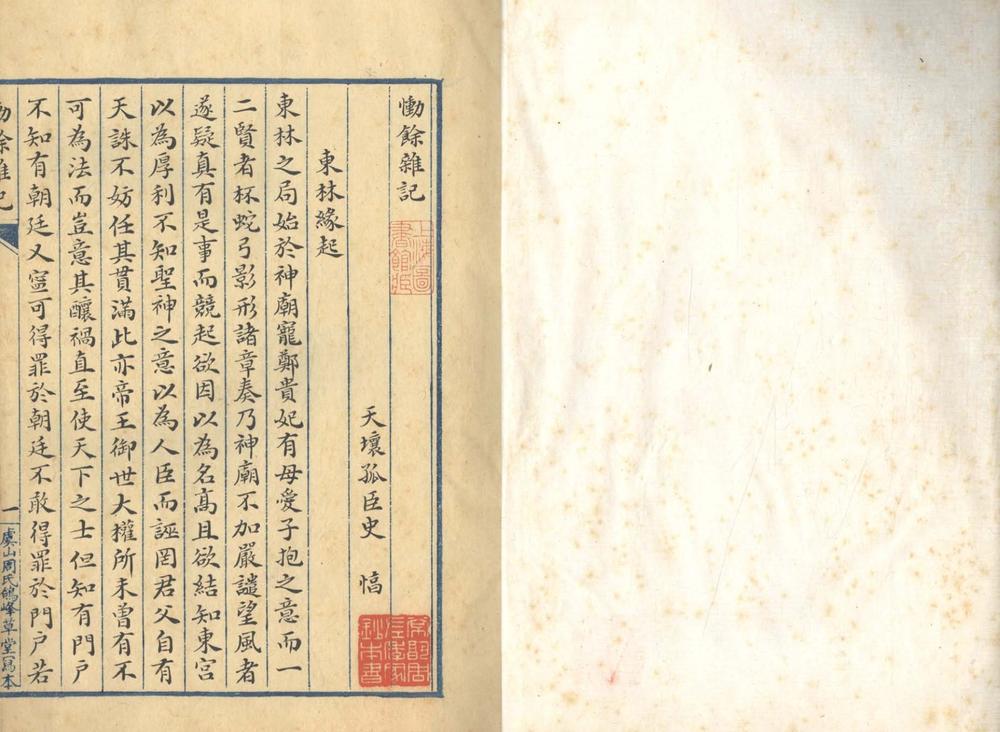 慟餘雜記
上海圖書館藏
天壤孤臣史 惇
東林緣起
東林之局始於神廟寵鄭貴妃有母愛子抱之意而一
二賢者杯蛇弓影形諸章奏乃神廟不加嚴譴望風者
遂疑真有是事而競起欲因以為名髙且欲結知東宮
以為厚利不知聖神之意以為人臣而誣罔君父自有
天誅不妨任其貫滿此亦帝王御世大權所未曾有不
可為法而豈意其釀禍直至使天下之士但知有門戶
不知有朝廷又寧可得罪於朝廷不敢得罪於門戶若
慟餘雜記
一
虞山周氏鴿峰草堂寫本